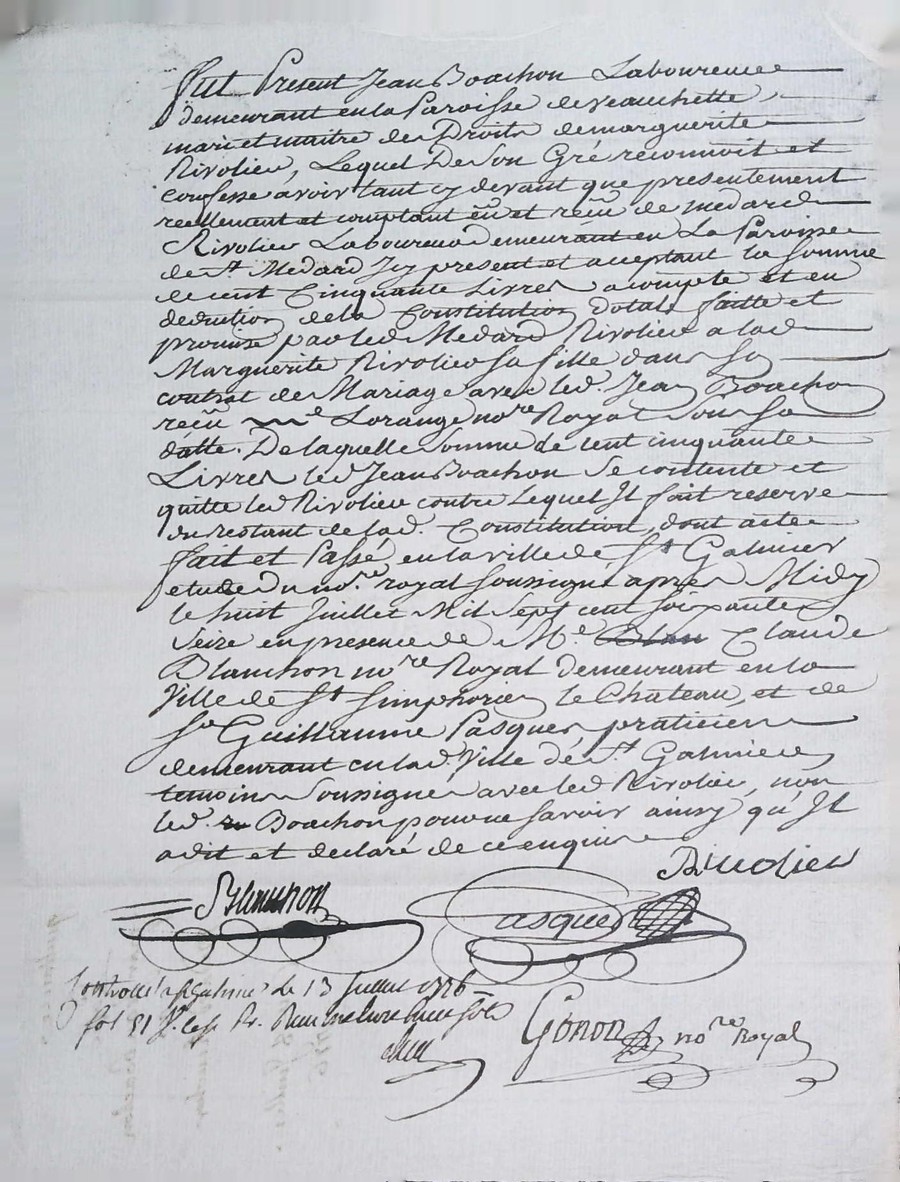 fut Present Jean Boachon Laboureur
demeurant en la Paroisse de veauchette,
mari et maitre des Droits de marguerite
Rivolier, Lequel De Son Gré reconnoit et
confesse avoir tant cy devant que presentement
reellement et comptant eü et reçu de medard
Rivolier Laboureur Demeurant en La Paroisse
de st Medard Icy present et aceptant la somme
de cent Cinquante Livres a compte et en
deduction de la Constitution dotale faitte et
promise par led Medard Rivolier a lad
Marguerite Rivolier sa fille dans Son
contrat de Mariage avec led. Jean Boachon
reçü me Lorange nore Royal sous sa
datte. De laquelle somme de cent cinquante
Livres led Jean Boachon Se contente et
quitte led Rivolier contre Lequel Il fait reserve
du restant de lad. Constitution, dont acte
fait et Passé en la ville de St Galmier
etude du nore royal soussigné apres Midy
le huit Juillet Mil Sept cent soixante
Seize en presence de Me Claude
Blanchon nore Royal demeurant en la
Ville de St Simphorien le Chateau, et de
Sr Guillaume Pasquer, praticien
demeurant en lad. Ville de st Galmier
temoins Soussignes avec led Rivolier, non
led. Boachon pour ne savoir ainsy qu'Il
a dit et declaré de ce enquis
Rivolier
Blanchon
Pasquer
Controllé a St Galmier le 13 Juillet 1776
fol 51
Gonon nore Royal